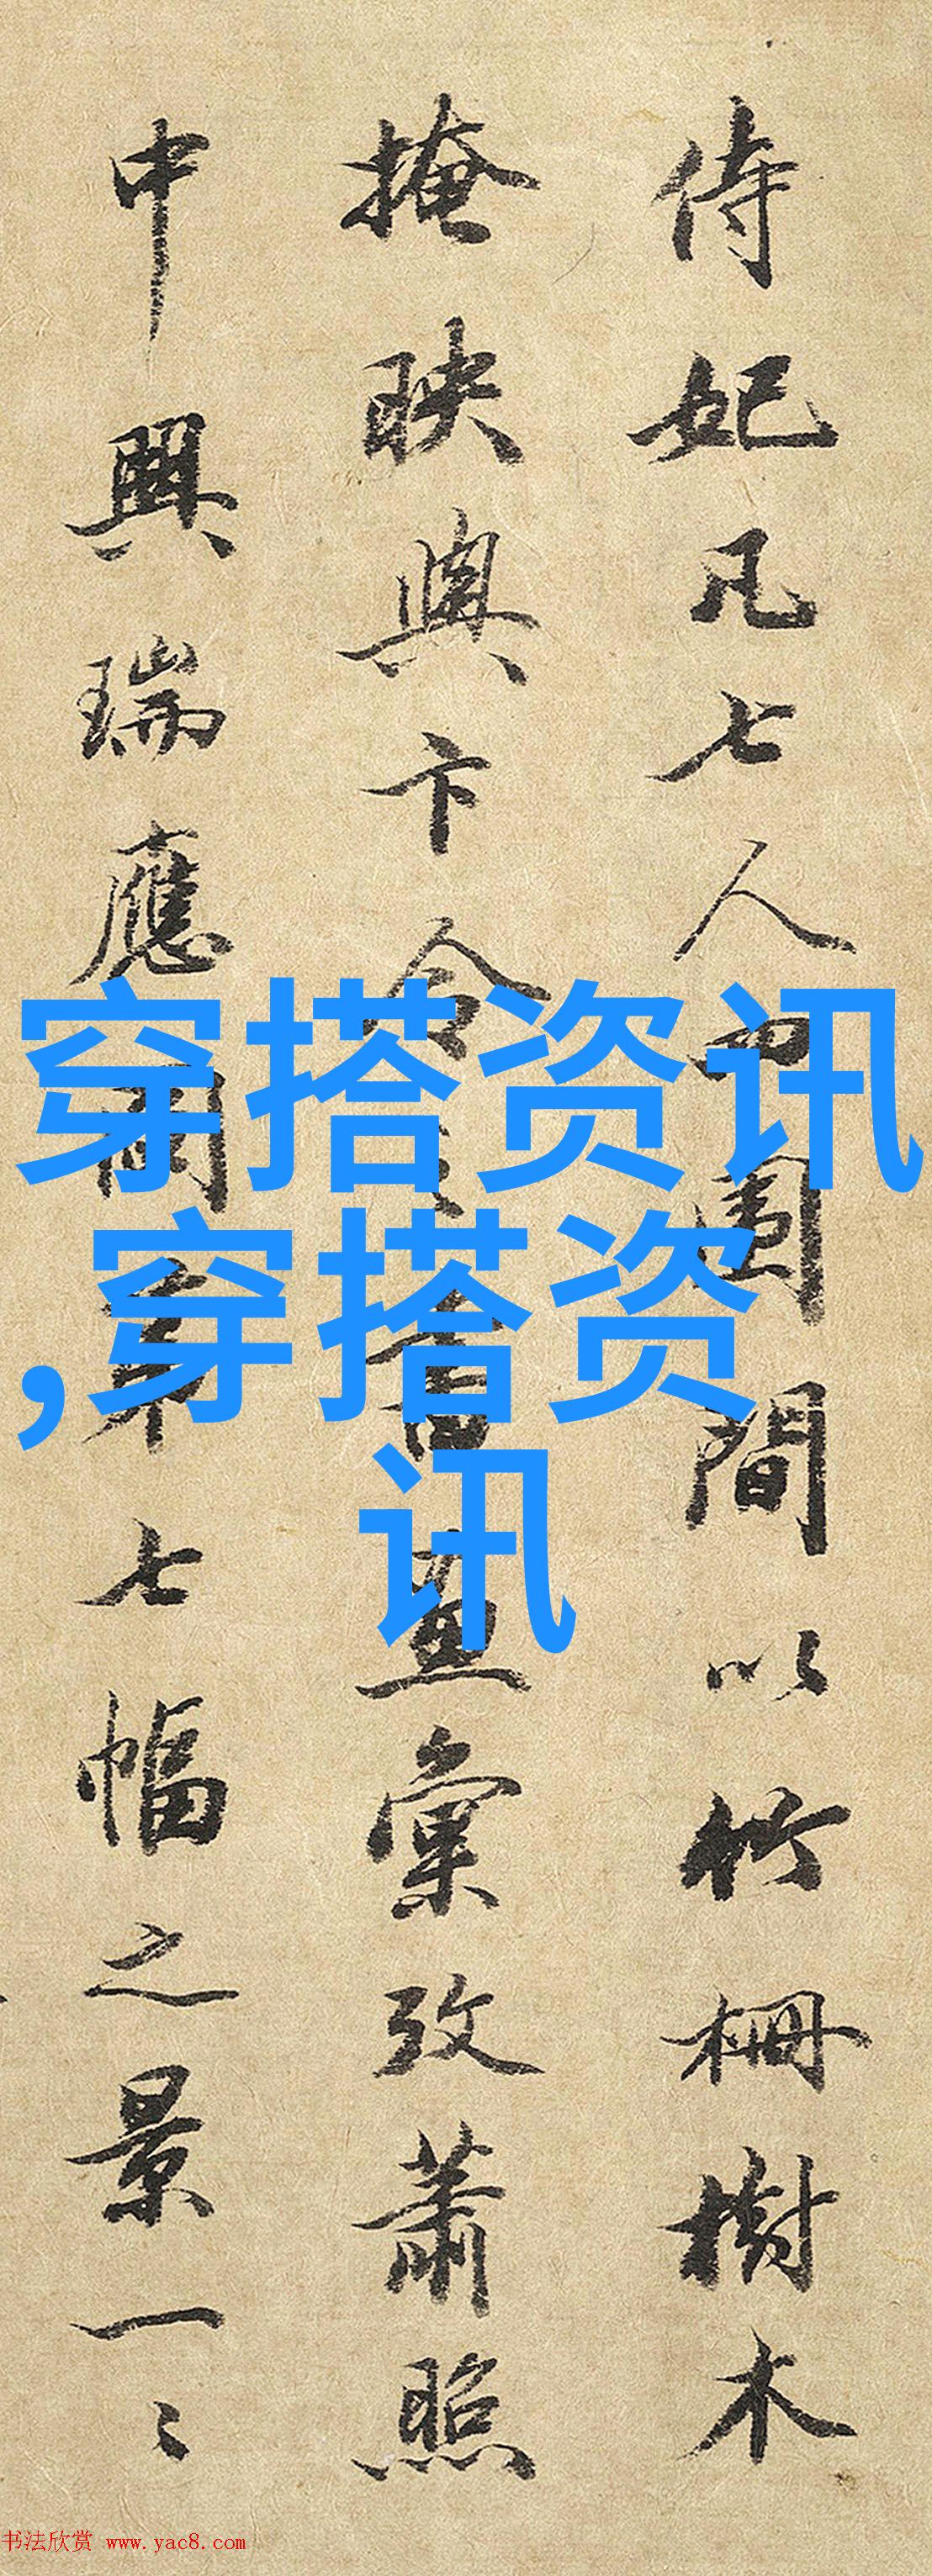 侍妃凡七人 園間以竹柵樹木
掩映與卞令之書畫彙攷蕭照
中興瑞應圖第七幅之景一〻
穿搭资讯
,穿搭资
讯
书法欣赏 www.yac8.com